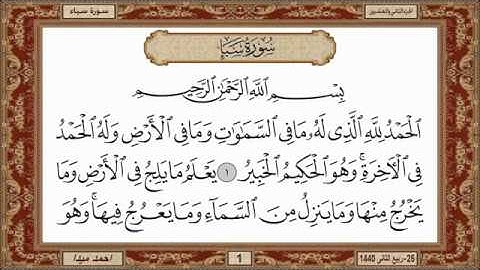 سورة سباء
الجزء الثاني والعشرين
سُورَةُ سَبَإٍ
بِسْمِ ٱللَّهِ ٱلرَّحْمَٰنِ ٱلرَّحِيمِ
ٱلْحَمْدُ لِلَّهِ ٱلَّذِى لَهُۥ مَا فِى ٱلسَّمَٰوَٰتِ وَمَا فِى ٱلْأَرْضِ وَلَهُ ٱلْحَمْدُ
فِى ٱلْـَٔاخِرَةِ ۚ وَهُوَ ٱلْحَكِيمُ ٱلْخَبِيرُ ١ يَعْلَمُ مَا يَلِجُ فِى ٱلْأَرْضِ وَمَا
يَخْرُجُ مِنْهَا وَمَا يَنزِلُ مِنَ ٱلسَّمَآءِ وَمَا يَعْرُجُ فِيهَا ۚ وَهُوَ
احمد ميدا
1
25-ربيع الثاني 1440